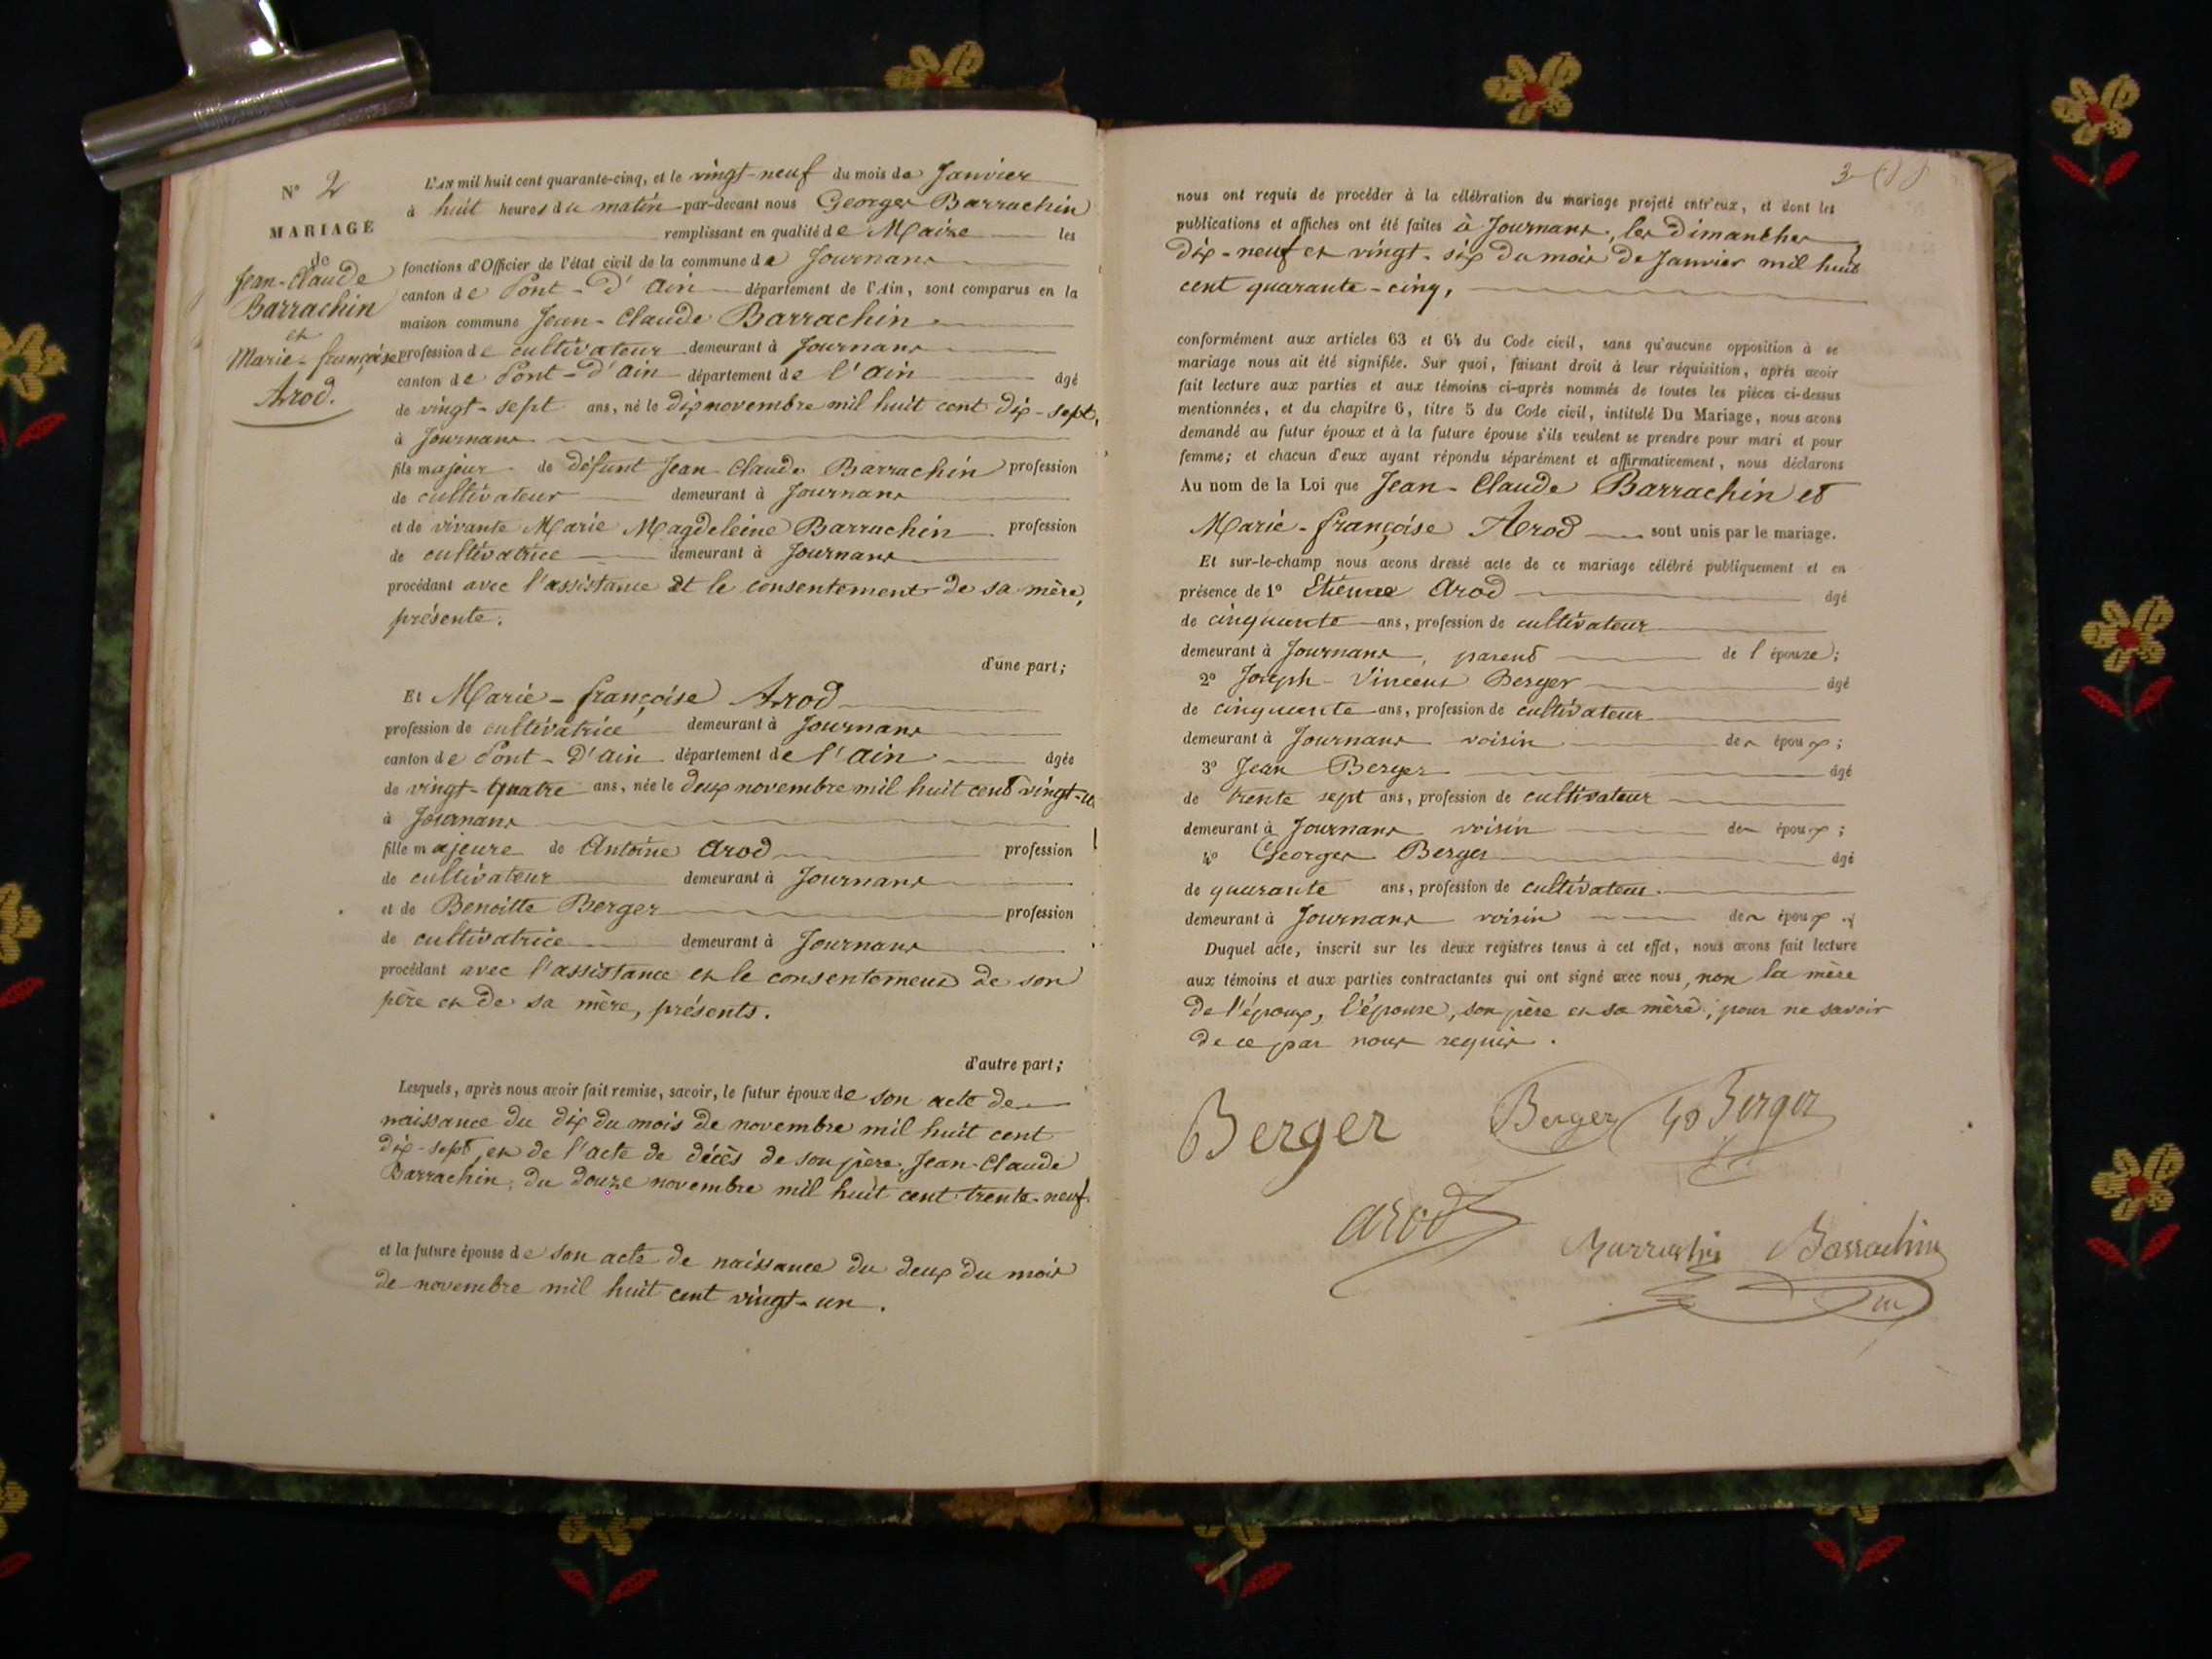 N° 2
MARIAGE
de
Jean-Claude
Barrachin
et
Marie-françoise
Arod.
L'AN mil huit cent quarante-cinq, et le vingt-neuf du mois de Janvier
à huit heures du matin par-devant nous Georges Barrachin
remplissant en qualité de Maire les
fonctions d'Officier de l'état civil de la commune de Journans
canton de Pont-d'ain département de l'Ain, sont comparus en la
maison commune Jean-Claude Barrachin
profession de cultivateur demeurant à Journans
canton de Pont-d'ain département de l'ain âgé
de vingt-sept ans, né le dix novembre mil huit cent dix-sept,
à Journans
fils majeur de défunt Jean Claude Barrachin profession
de cultivateur demeurant à Journans
et de vivante Marie Magdeleine Barrachin profession
de cultivatrice demeurant à Journans
procédant avec l'assistance et le consentement de sa mère,
présente.
d'une part;
Et Marie-françoise Arod
profession de cultivatrice demeurant à Journans
canton de Pont-D'ain département de l'ain âgée
de vingt-quatre ans, née le deux novembre mil huit cent vingt-u
à Journans
fille majeure de Antoine Arod profession
de cultivateur demeurant à Journans
et de Benoitte Berger profession
de cultivatrice demeurant à Journans
procédant avec l'assistance et le consentement de son
père et de sa mère, présents.
d'autre part;
Lesquels, après nous avoir fait remise, savoir, le futur époux de son acte de
naissance du dix du mois de novembre mil huit cent
dix-sept, et de l'acte de décès de son père, Jean-Claude
Barrachin, du douze novembre mil huit cent trente-neuf.
et la future épouse de son acte de naissance du deux du mois
de novembre mil huit cent vingt-un.
3
nous ont requis de procéder à la célébration du mariage projeté entr'eux, et dont les
publications et affiches ont été faites à Journans, les dimanches
dix-neuf et vingt-six du mois de Janvier mil huit
cent quarante-cinq,
conformément aux articles 63 et 64 du Code civil, sans qu'aucune opposition à ce
mariage nous ait été signifiée. Sur quoi, faisant droit à leur réquisition, après avoir
fait lecture aux parties et aux témoins ci-après nommés de toutes les pièces ci-dessus
mentionnées, et du chapitre 6, titre 5 du Code civil, intitulé Du Mariage, nous avons
demandé au futur époux et à la future épouse s'ils veulent se prendre pour mari et pour
femme; et chacun d'eux ayant répondu séparément et affirmativement, nous déclarons
Au nom de la Loi que Jean-Claude Barrachin et
Marie-françoise Arod sont unis par le mariage.
Et sur-le-champ nous avons dressé acte de ce mariage célébré publiquement et en
présence de 1° Etienne Arod âgé
de cinquante ans, profession de cultivateur
demeurant à Journans, parent de l'épouse;
2° Joseph-Vincent Berger âgé
de cinquante ans, profession de cultivateur
demeurant à Journans voisin des époux;
3° Jean Berger âgé
de trente sept ans, profession de cultivateur
demeurant à Journans voisin des époux;
4° Georges Berger âgé
de quarante ans, profession de cultivateur.
demeurant à Journans voisin des époux.
Duquel acte, inscrit sur les deux registres tenus à cet effet, nous avons fait lecture
aux témoins et aux parties contractantes qui ont signé avec nous, non la mère
de l'époux, l'épouse, son père et sa mère, pour ne savoir
de ce par nous requis.
Berger Berger Berger
arod
Barrachin Barrachin